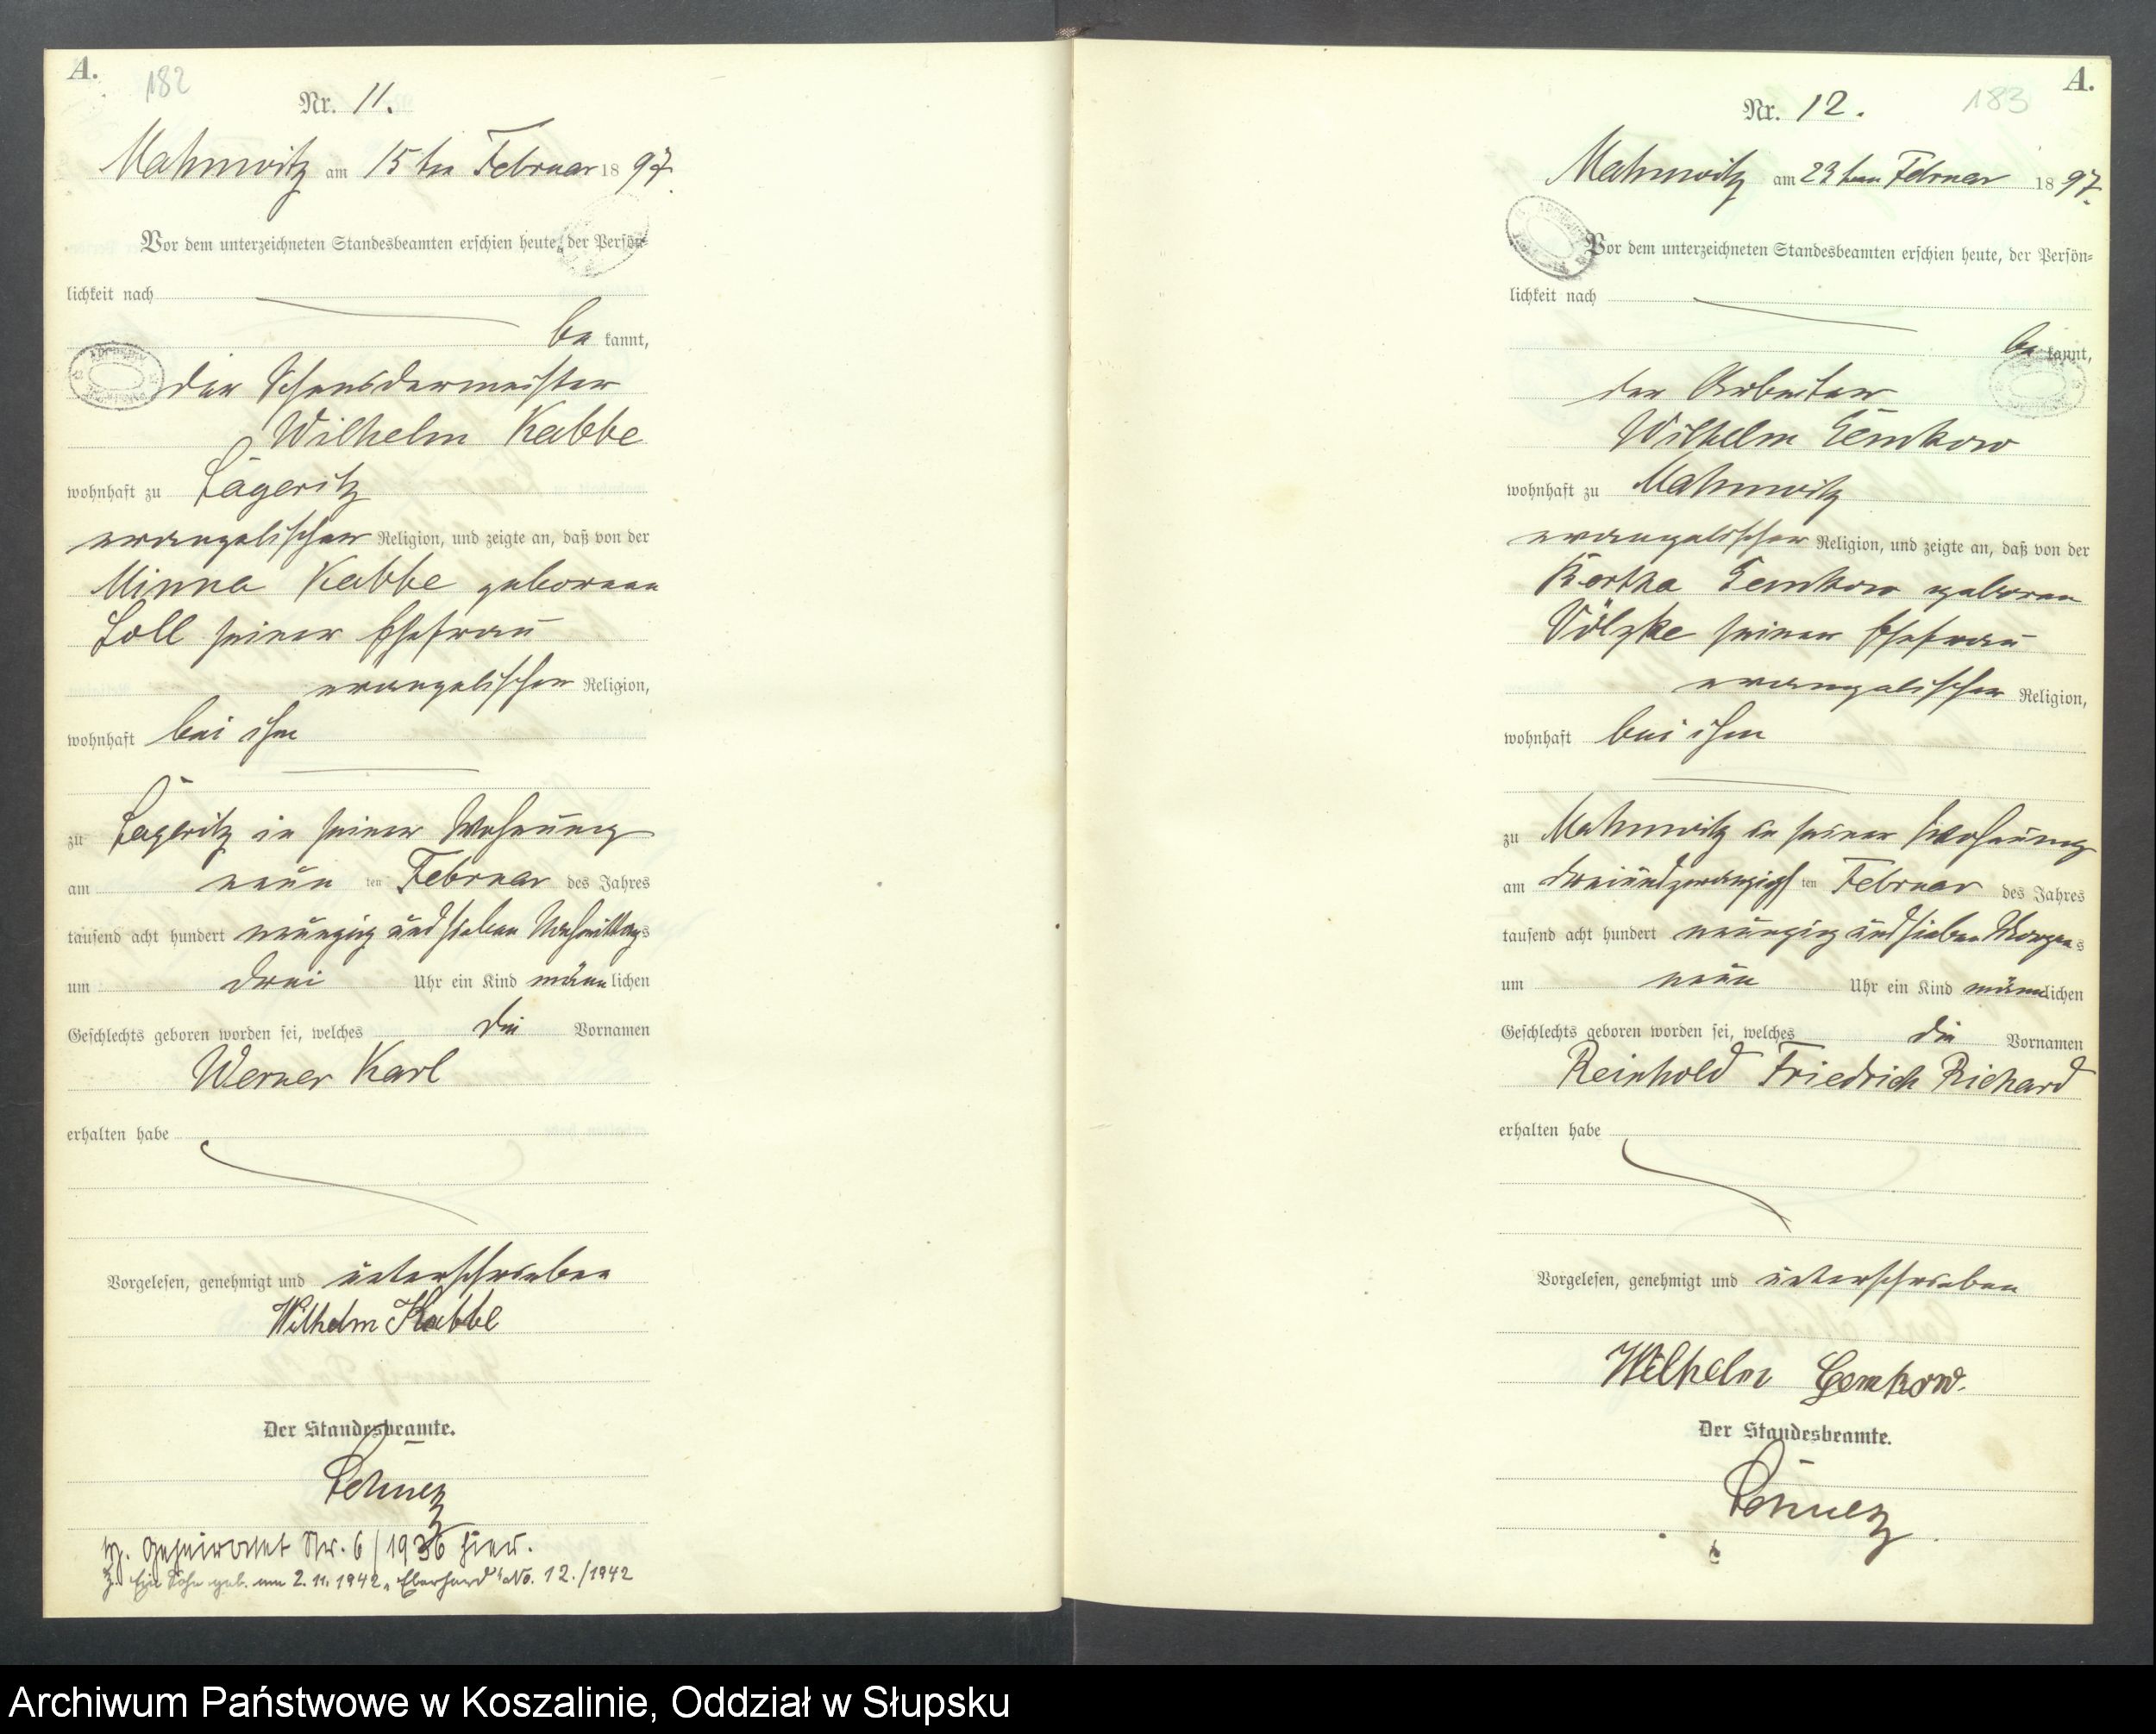 A.
182
Nr. 11.
Mahnwitz am 15ten Februar 1897.
Vor dem unterzeichneten Standesbeamten erschien heute, der Persön-
lichkeit nach
be kannt,
der
Wilhelm Kabbe
wohnhaft zu Lägeritz
evangelischer Religion, und zeigte an, daß von der
Minna Kabbe geborene
Loll seiner Ehefrau
evangelischer Religion,
wohnhaft bei ihm
zu Lägeritz in seiner Wohnung
am neun ten Februar des Jahres
tausend acht hundert neunzig und sieben Nachmittags
um drei Uhr ein Kind männlichen
Geschlechts geboren worden sei, welches die Vornamen
Werner Karl
erhalten habe
Vorgelesen, genehmigt und unterschrieben
Wilhelm Kabbe
Der Standesbeamte.
geheiratet Nr. 6/1936 hier.
2. Ein Sohn geb. am 2.11.1942 „Eberhard" No. 12./1942
A.
183
Nr. 12.
Mahnwitz am 23ten Februar 1897.
Vor dem unterzeichneten Standesbeamten erschien heute, der Persön-
lichkeit nach
be kannt,
der Arbeiter
Wilhelm Gemkow
wohnhaft zu Mahnwitz
evangelischer Religion, und zeigte an, daß von der
Bertha Gemkow geborene
Völzke seiner Ehefrau
evangelischer Religion,
wohnhaft bei ihm
zu Mahnwitz in seiner Wohnung
am dreiundzwanzigsten Februar des Jahres
tausend acht hundert neunzig und sieben Morgens
um neun Uhr ein Kind männlichen
Geschlechts geboren worden sei, welches die Vornamen
Reinhold Friedrich Richard
erhalten habe
Vorgelesen, genehmigt und unterschrieben
Wilhelm Gemkow.
Der Standesbeamte.
Archiwum Państwowe w Koszalinie, Oddział w Słupsku